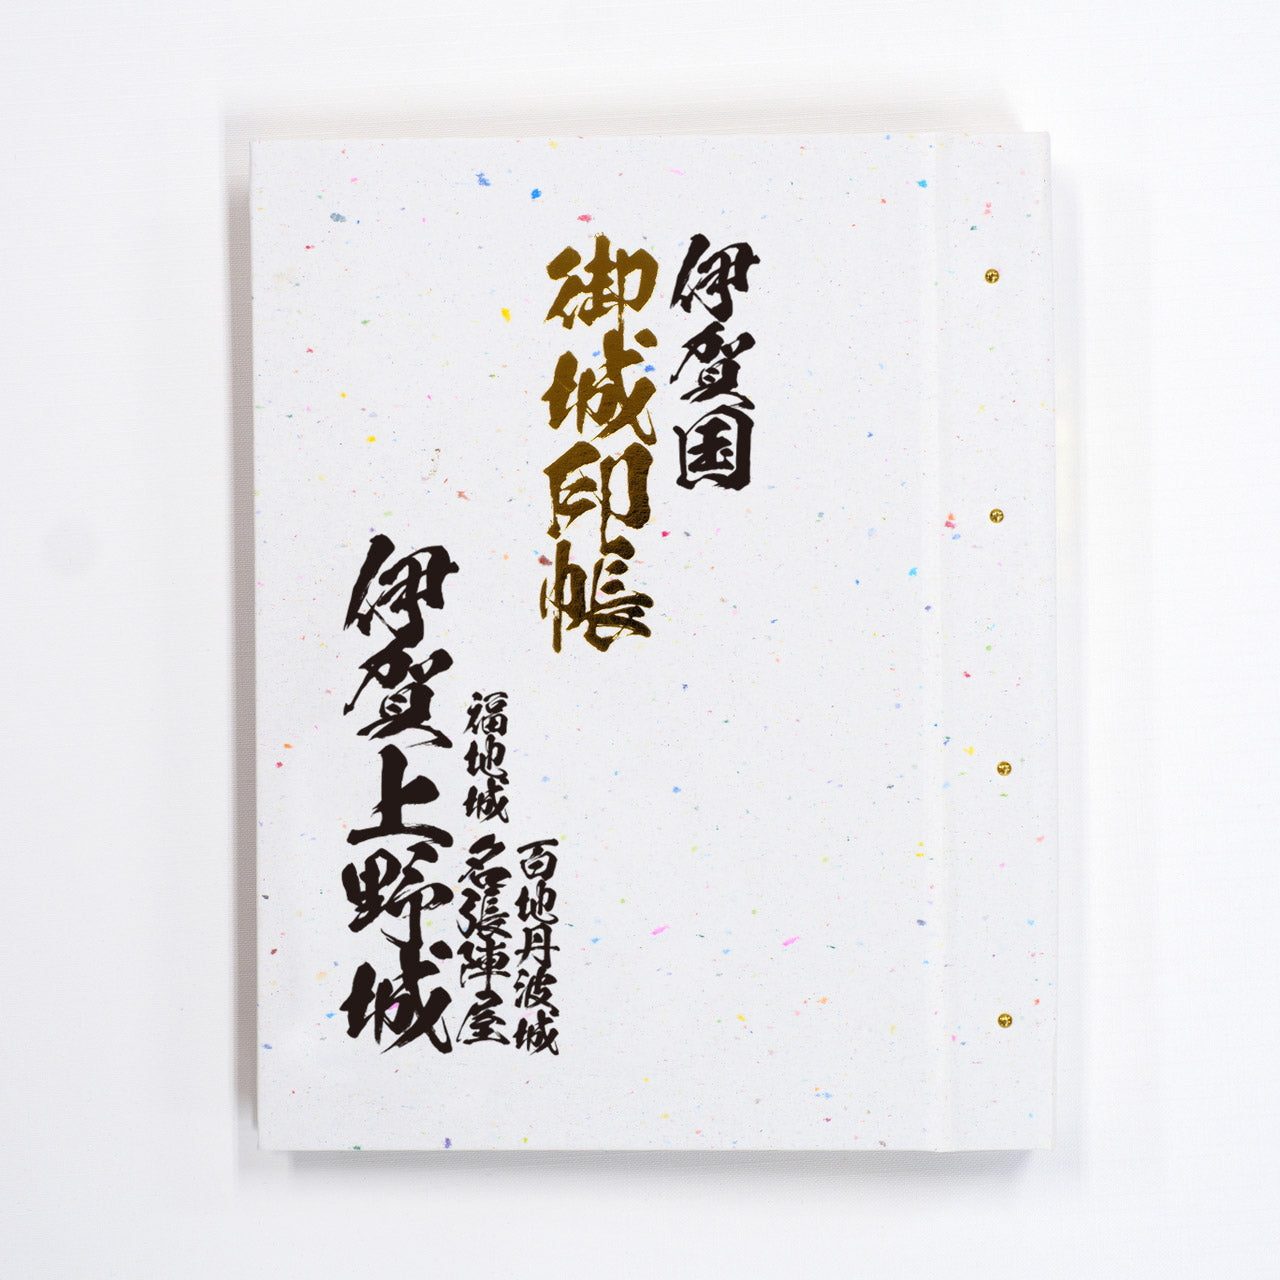 伊賀国
御城印帳
百地丹波城
福地城
名張陣屋
伊賀上野城